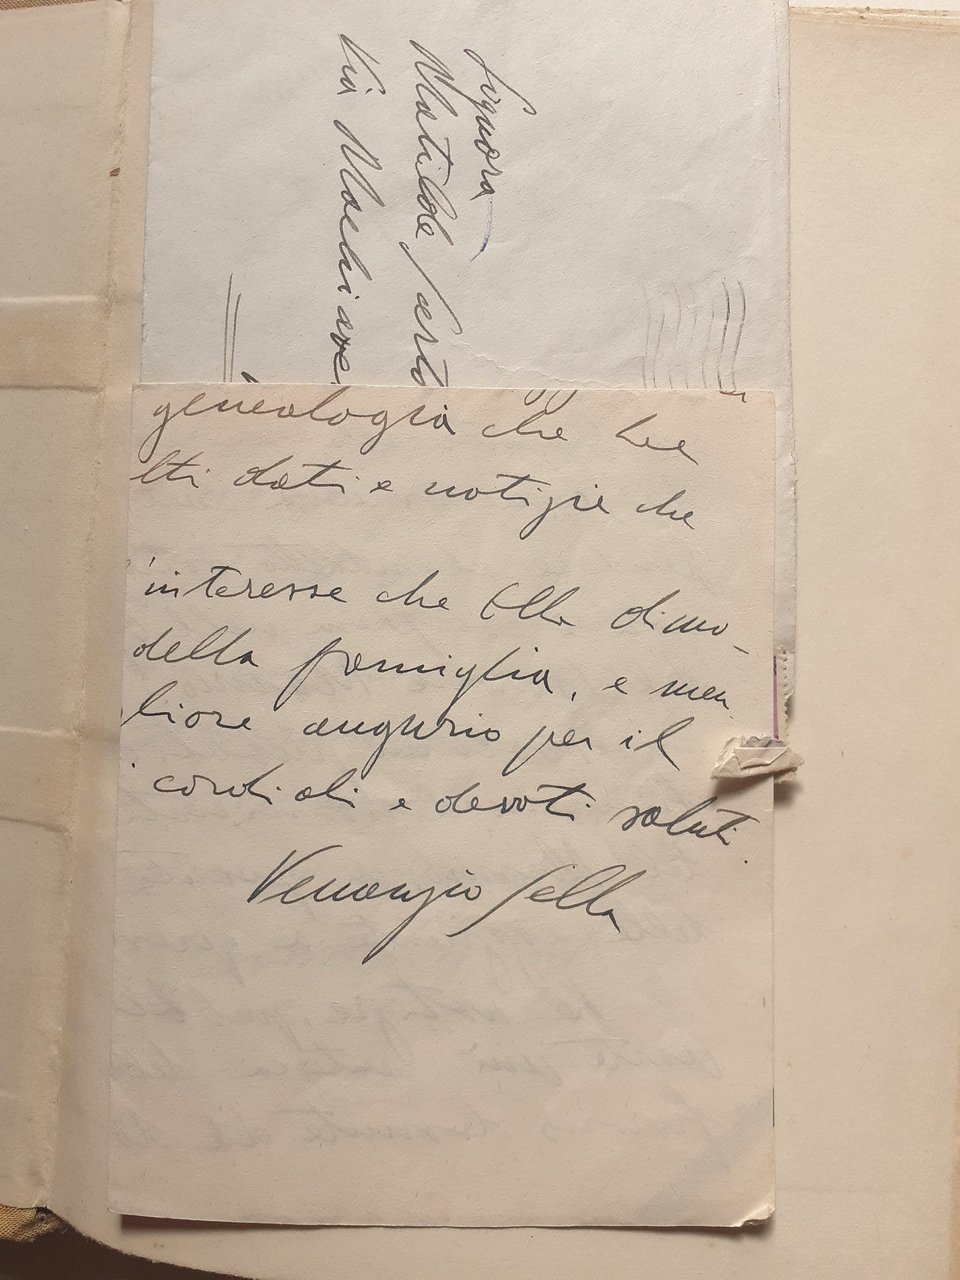 Signora
Matilde Sarto
Via Machiave
genealogia che
lti dati e notizie che
'interesse che Ella dimo-
della famiglia, e men
liore augurio per il
cordiali e devoti saluti.
Venanzio Sella